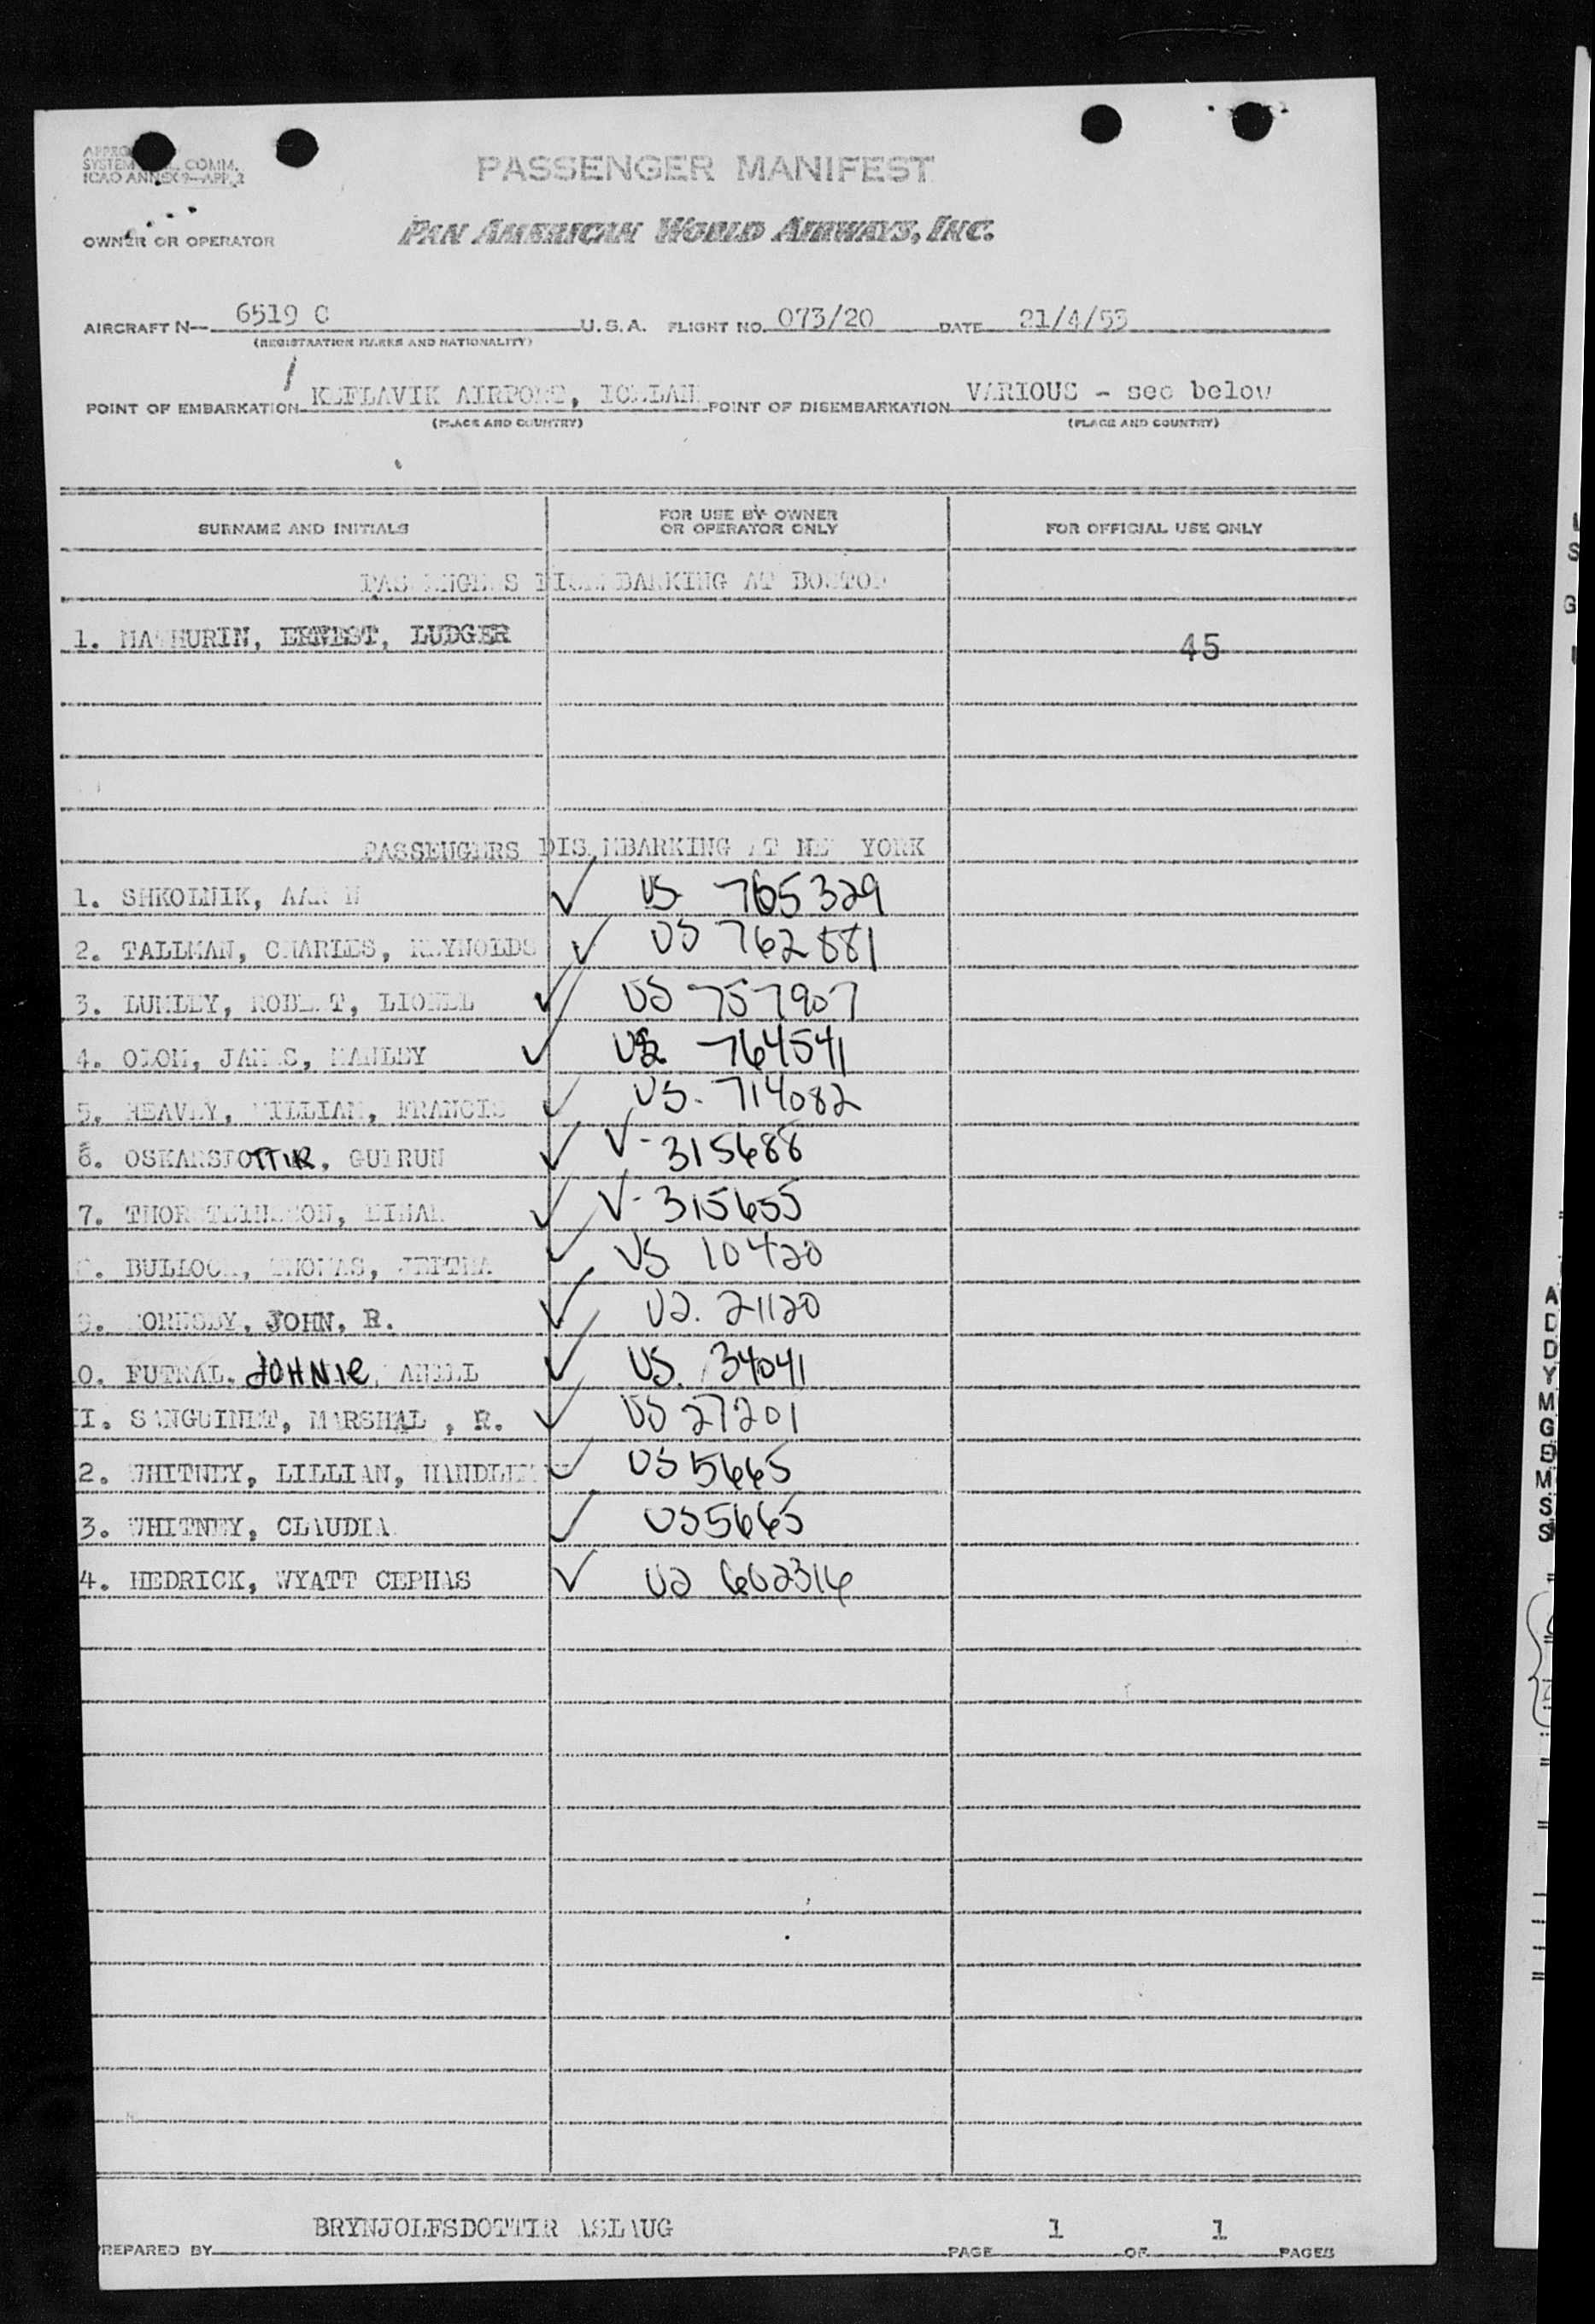 SYSTEM COMM.
ICAO ANNEX 9—APP. 2
PASSENGER MANIFEST
OWNER OR OPERATOR PAN AMERICAN WORLD AIRWAYS, INC.
AIRCRAFT N— 6519 C U.S.A. FLIGHT NO. 073/20 DATE 21/4/53
(REGISTRATION MARKS AND NATIONALITY)
POINT OF EMBARKATION KEFLAVIK AIRPORT, ICELAN POINT OF DISEMBARKATION VARIOUS - see below
(PLACE AND COUNTRY) (PLACE AND COUNTRY)
SURNAME AND INITIALS FOR USE BY OWNER OR OPERATOR ONLY FOR OFFICIAL USE ONLY
PASSENGERS DISEMBARKING AT BOSTON
1. MATHURIN, ERNEST, LUDGER 45
PASSENGERS DISEMBARKING AT NEW YORK
1. SHKOLNIK, AARON ✓ US 765329
2. TALLMAN, CHARLES, REYNOLDS ✓ US 762881
3. LUMLEY, ROBERT, LIONEL ✓ US 757907
4. ODOM, JAMES, MANLEY ✓ US 764541
5. HEAVEY, WILLIAM, FRANCIS ✓ US. 714082
6. OSKARSDOTTIR, GUDRUN ✓ V-315688
7. THORSTEINSSON, EINAR ✓ V-315655
BULLOCK, THOMAS, ✓ US 10420
9. HORNSBY, JOHN, R. ✓ US. 21120
0. FUTRAL, JOHNIE, ✓ US. 34041
II. SANGUINET, MARSHAL , R. ✓ US 27201
2. WHITNEY, LILLIAN, ✓ US 5665
3. WHITNEY, CLAUDIA ✓ US 5665
4. HEDRICK, WYATT CEPHAS ✓ US 602316
PREPARED BY BRYNJOLFSDOTTIR ASLAUG PAGE 1 OF 1 PAGES